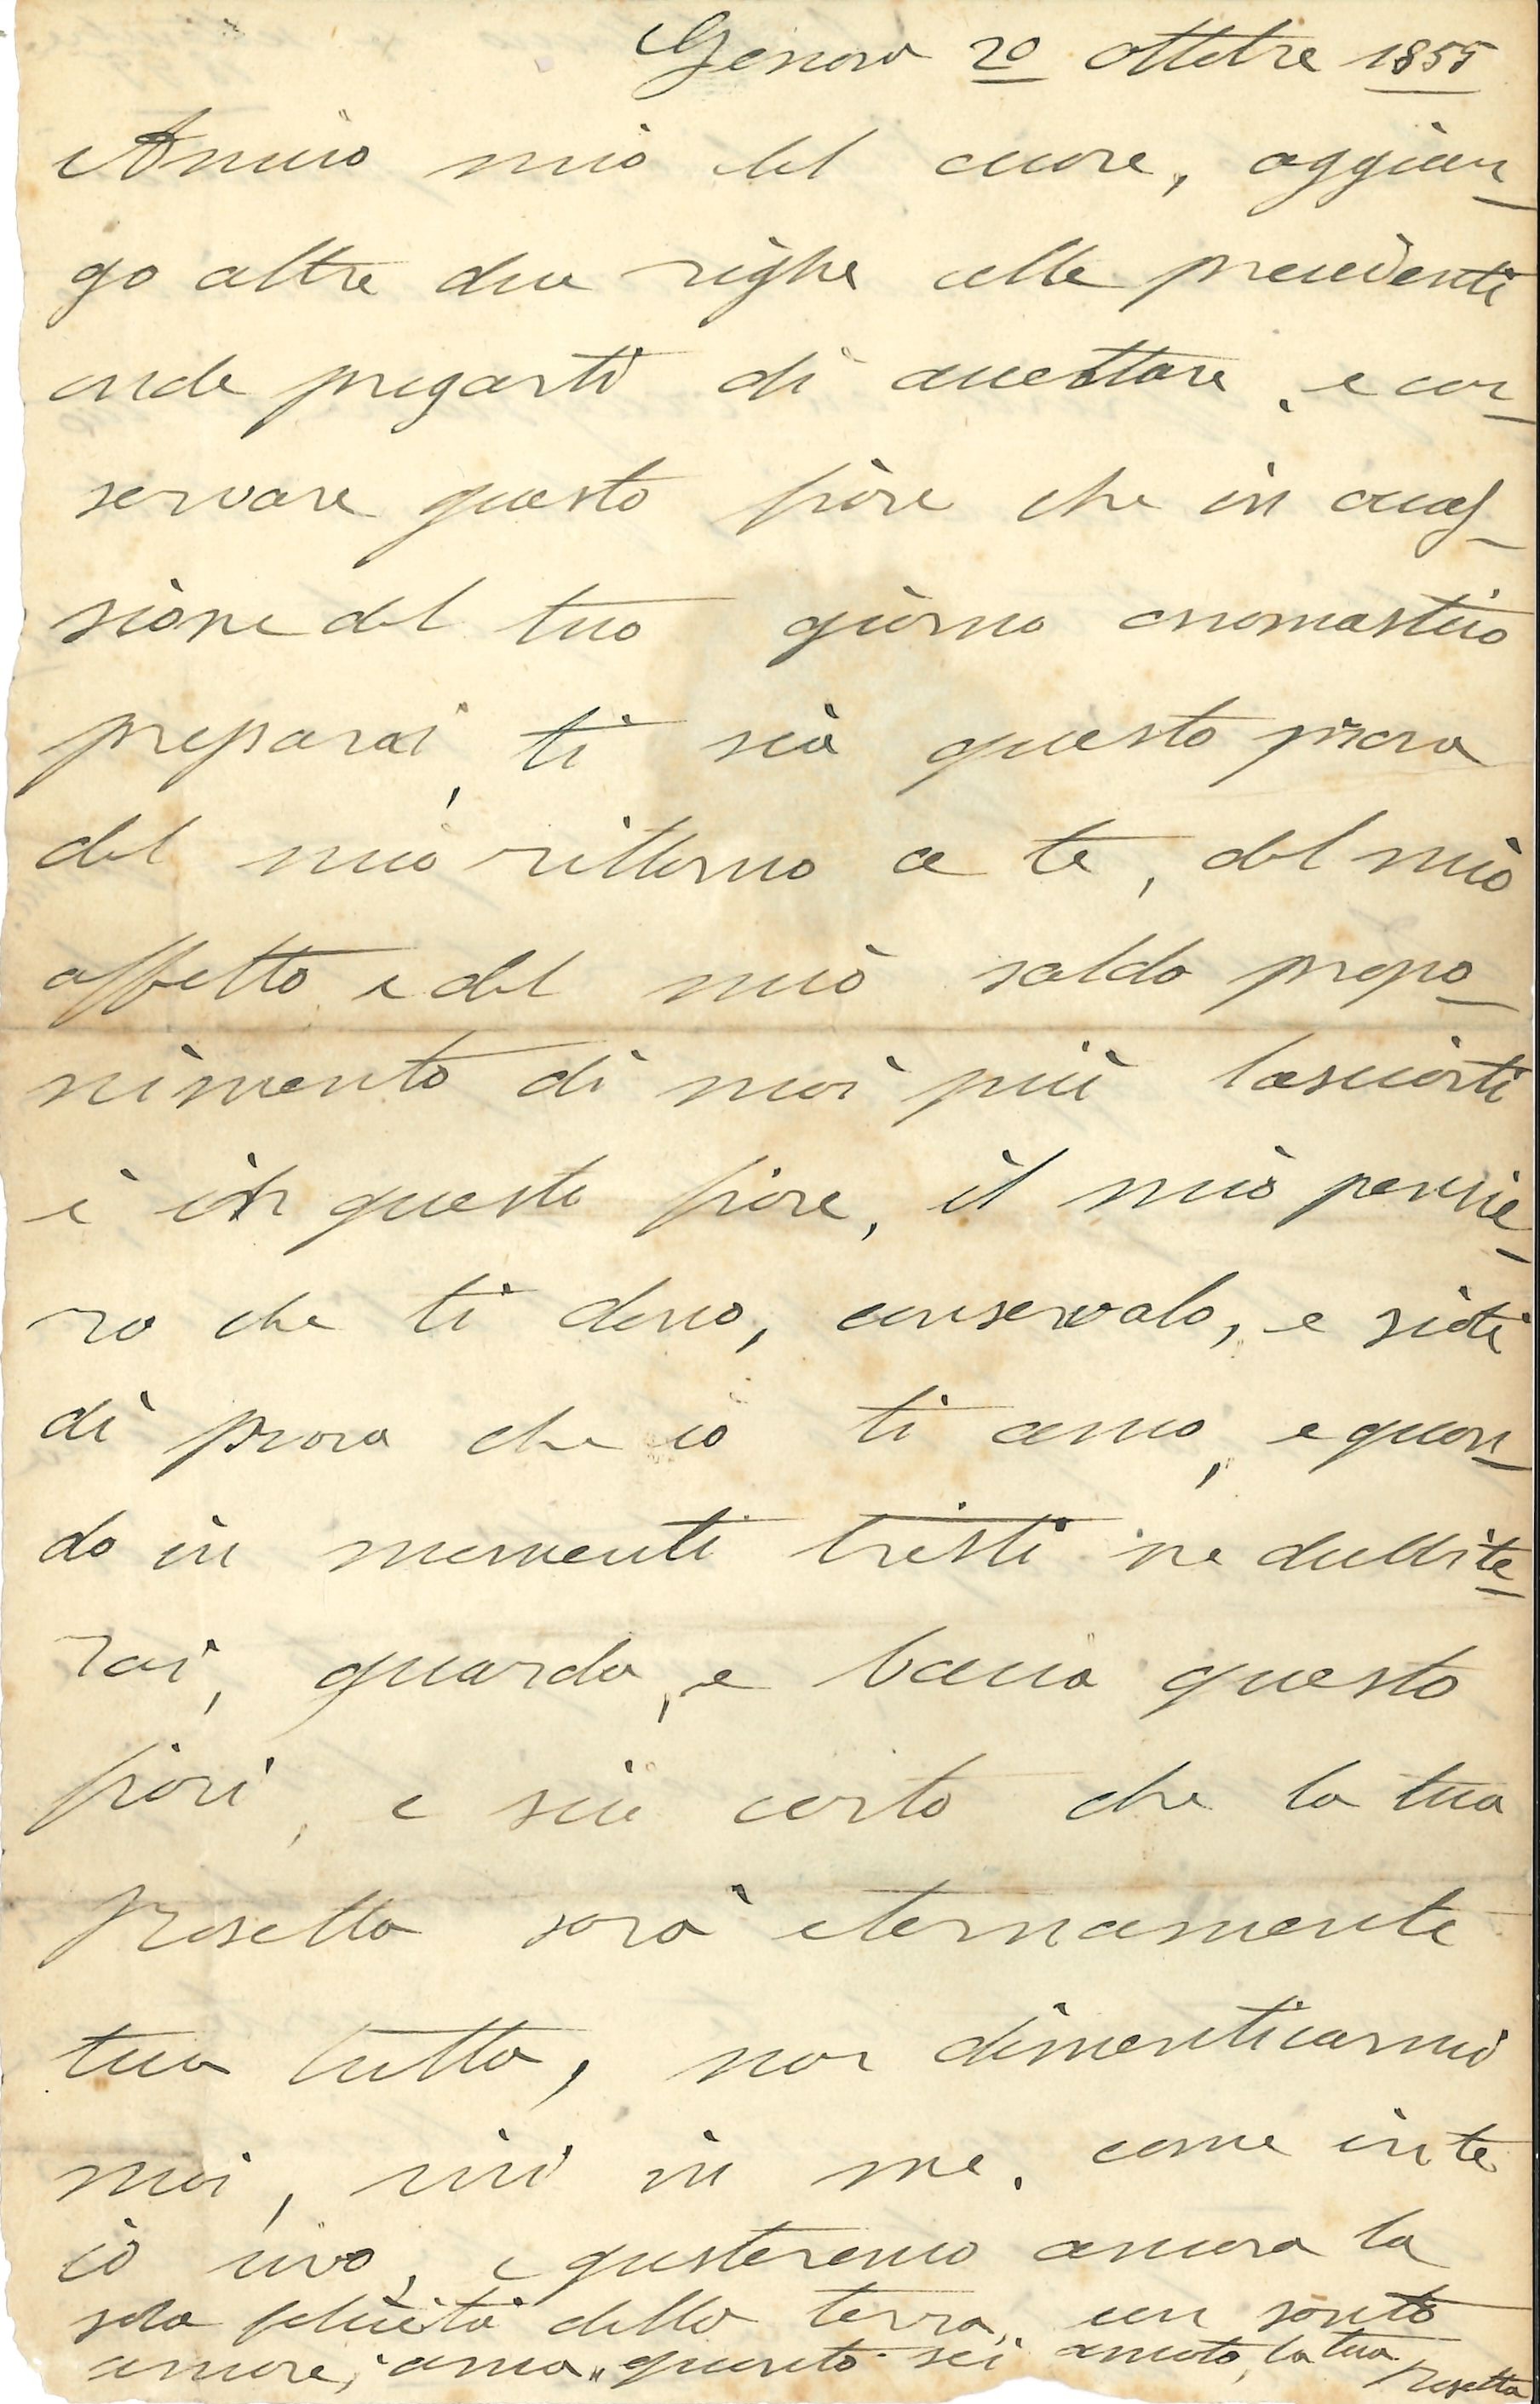 Genova 20 ottobre 1855
Amico mio del cuore, aggiun-
go altre due righe alle precedenti
onde pregarti di accettare, e con-
servare questo fiore che in occa-
sione del tuo giorno onomastico
preparai, ti sia questo prova
del mio rittorno a te, del mio
affetto e del mio saldo propo-
nimento di mai più lasciarti
è in questo fiore, il mio pensie-
ro che ti dono, conservalo, e siati
di prova che io ti amo, e quan-
do in momenti tristi ne dubbite-
rai, guarda, e bacia questo
fiori, e sii certo che la tua
Rosetta sarà eternamente
tua tutta, non dimenticarmi
mai, vivi in me, come in te
io vivo, e gusteremo ancora la
sola felicità della terra, un santo
amore, ama quanto sei amato, la tua Rosetta